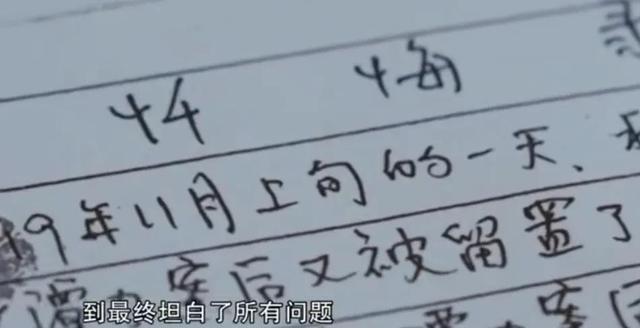 忏 悔
19年11月上旬的一天、
案后又被留置了
到最终坦白了所有问题